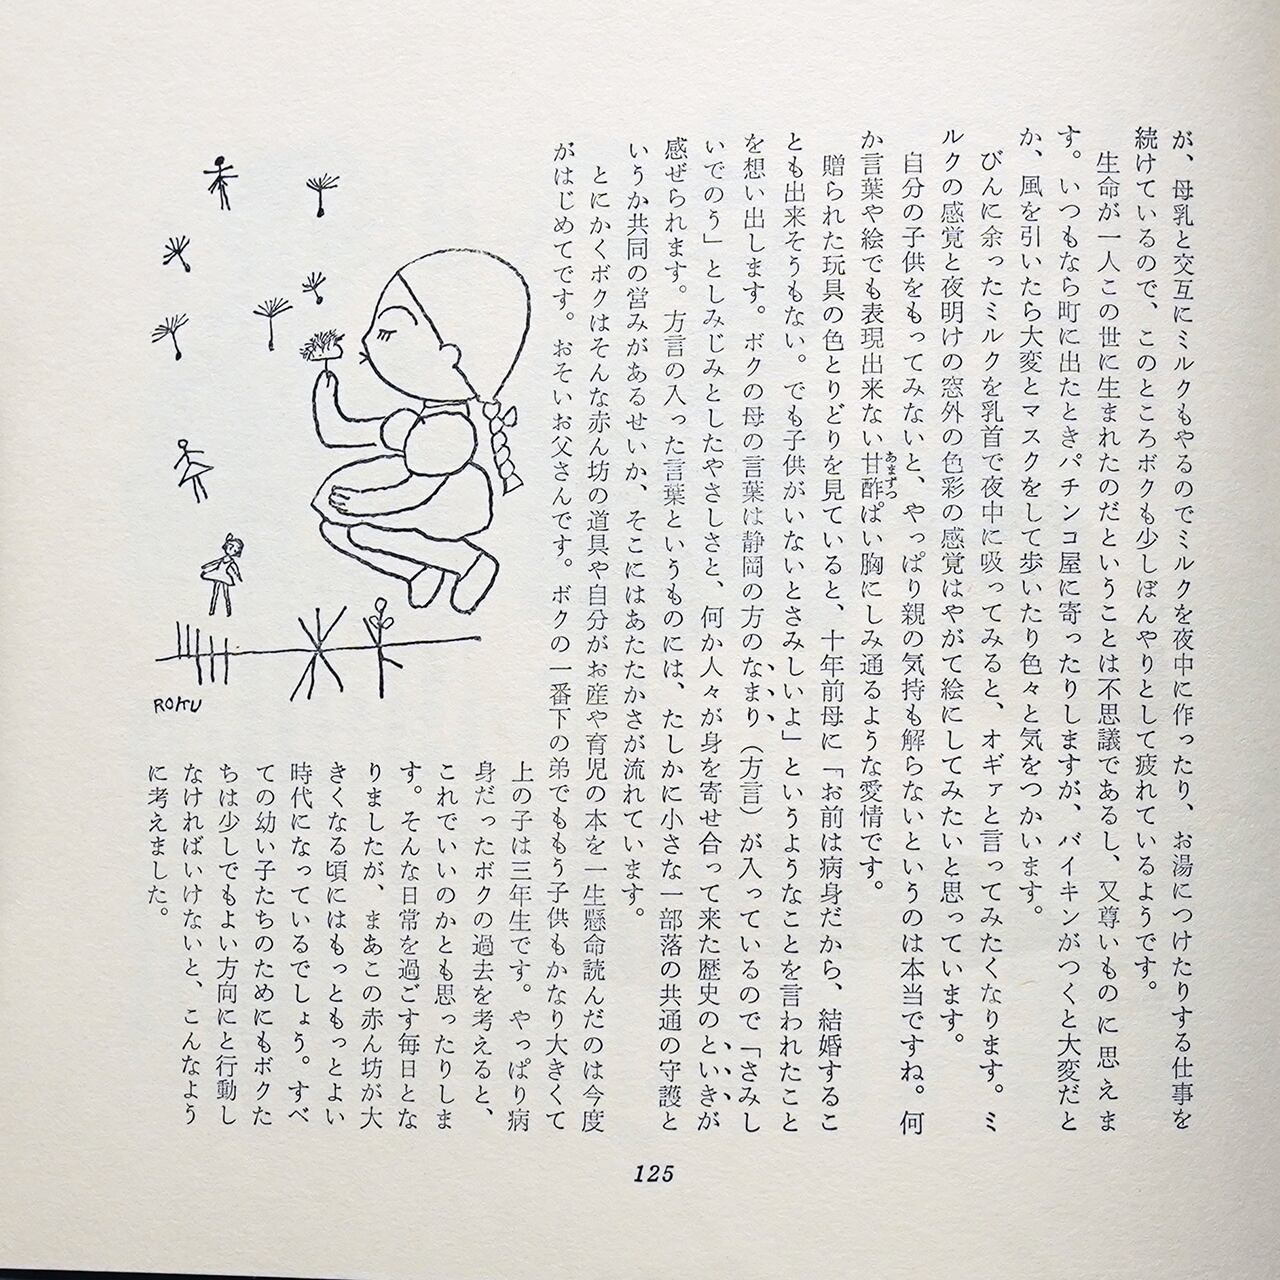 が、母乳と交互にミルクもやるのでミルクを夜中に作ったり、お湯につけたりする仕事を
続けているので、このところボクも少しぼんやりとして疲れているようです。
生命が一人この世に生まれたのだということは不思議であるし、又尊いものに思えま
す。いつもなら町に出たときパチンコ屋に寄ったりしますが、バイキンがつくと大変だと
か、風を引いたら大変とマスクをして歩いたり色々と気をつかいます。
びんに余ったミルクを乳首で夜中に吸ってみると、オギァと言ってみたくなります。ミ
ルクの感覚と夜明けの窓外の色彩の感覚はやがて絵にしてみたいと思っています。
自分の子供をもってみないと、やっぱり親の気持も解らないというのは本当ですね。何
か言葉や絵でも表現出来ない甘酢ぱい胸にしみ通るような愛情です。
あまずつ
贈られた玩具の色とりどりを見ていると、十年前母に「お前は病身だから、結婚するこ
とも出来そうもない。でも子供がいないとさみしいよ」というようなことを言われたこと
を想い出します。ボクの母の言葉は静岡の方のなまり（方言）が入っているので「さみし
いでのう」としみじみとしたやさしさと、何か人々が身を寄せ合って来た歴史のといきが
感ぜられます。方言の入った言葉というものには、たしかに小さな一部落の共通の守護と
いうか共同の営みがあるせいか、そこにはあたたかさが流れています。
とにかくボクはそんな赤ん坊の道具や自分がお産や育児の本を一生懸命読んだのは今度
がはじめてです。おそいお父さんです。ボクの一番下の弟でももう子供もかなり大きくて
上の子は三年生です。やっぱり病
身だったボクの過去を考えると、
これでいいのかとも思ったりしま
す。そんな日常を過ごす毎日とな
りましたが、まあこの赤ん坊が大
きくなる頃にはもっともっとよい
時代になっているでしょう。すべ
ての幼い子たちのためにもボクた
ちは少しでもよい方向にと行動し
なければいけないと、こんなよう
に考えました。
ROKU
125